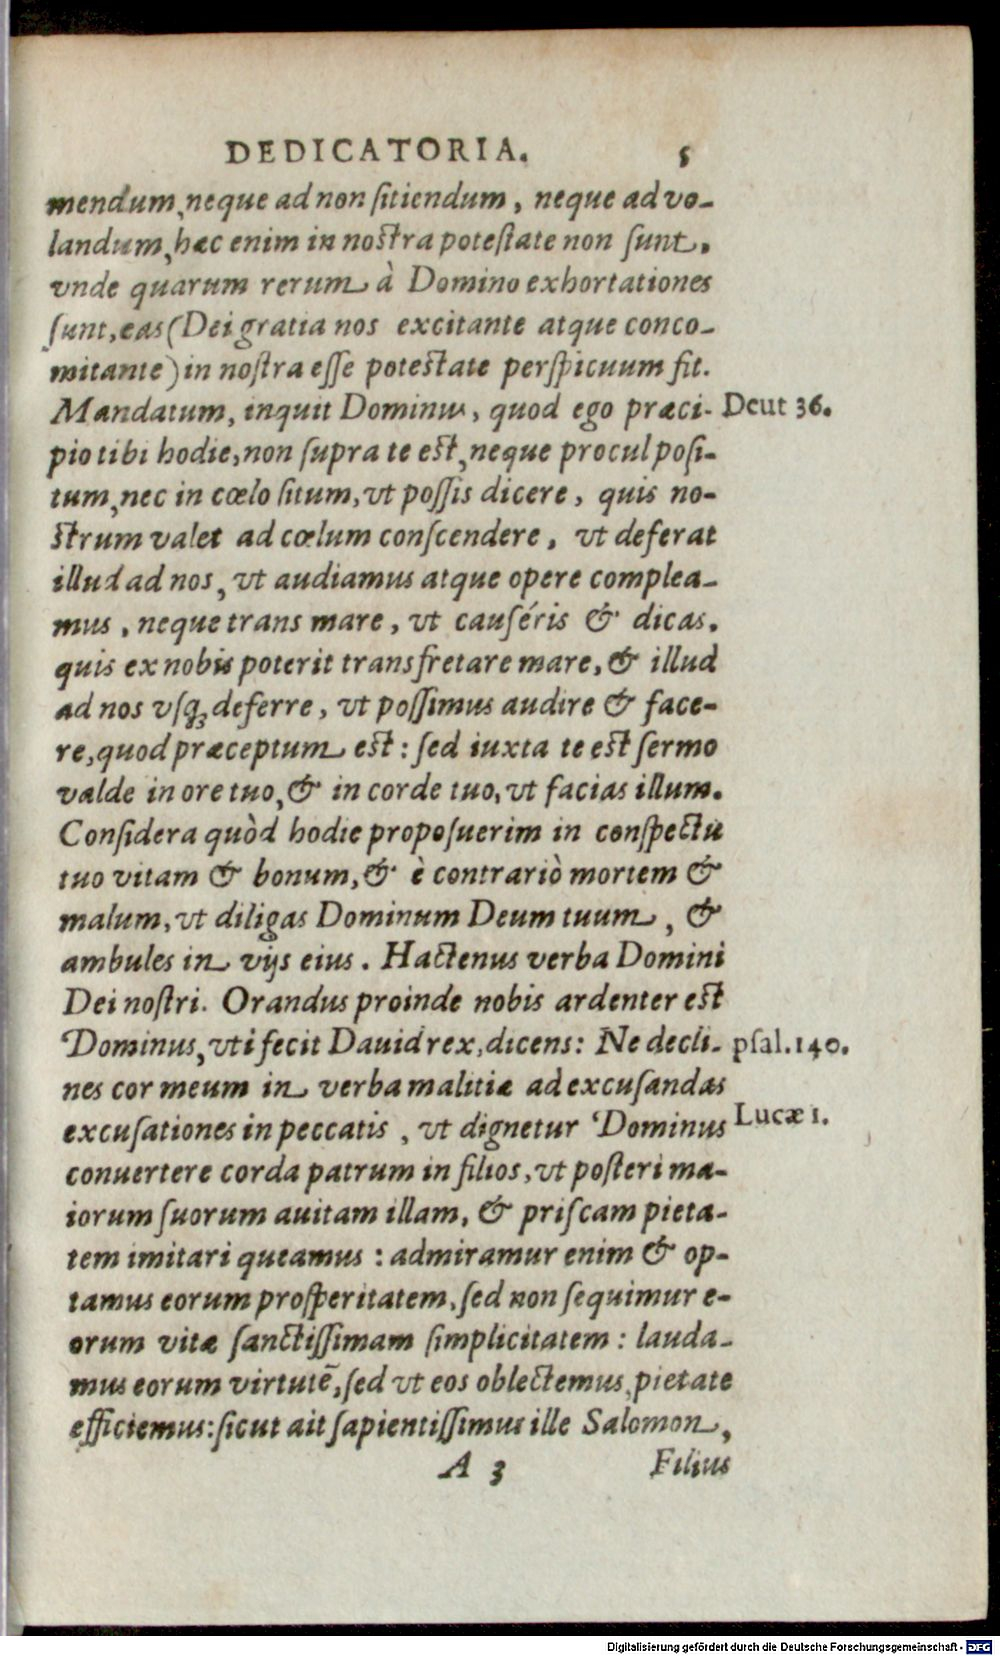 DEDICATORIA. 5
mendum, neque ad non ſitiendum, neque ad vo-
landum, hæc enim in noſtra poteſtate non ſunt.
vnde quarum rerum à Domino exhortationes
ſunt, eas (Dei gratia nos excitante atque conco-
mitante) in noſtra eſſe poteſtate perſpicuum fit.
Mandatum, inquit Dominus, quod ego præci- Deut 36.
pio tibi hodie, non ſupra te eſt, neque procul poſi-
tum, nec in cœlo ſitum, vt poſſis dicere, quis no-
ſtrum valet ad cœlum conſcendere, vt deferat
illud ad nos, vt audiamus atque opere complea-
mus, neque trans mare, vt cauſéris & dicas.
quis ex nobis poterit transfretare mare, & illud
ad nos vſq; deferre, vt poſſimus audire & face-
re, quod præceptum eſt: ſed iuxta te eſt ſermo
valde in ore tuo, & in corde tuo, vt facias illum.
Conſidera quòd hodie propoſuerim in conſpectu
tuo vitam & bonum, & è contrariò mortem &
malum, vt diligas Dominum Deum tuum, &
ambules in vijs eius. Hactenus verba Domini
Dei noſtri. Orandus proinde nobis ardenter eſt
Dominus, vti fecit Dauid rex, dicens: Ne decli- pſal. 140.
nes cor meum in verba malitiæ ad excuſandas
excuſationes in peccatis, vt dignetur Dominus Lucæ 1.
conuertere corda patrum in filios, vt poſteri ma-
iorum ſuorum auitam illam, & priſcam pieta-
tem imitari queamus: admiramur enim & op-
tamus eorum proſperitatem, ſed non ſequimur e-
orum vitæ ſanctiſſimam ſimplicitatem: lauda-
mus eorum virtutē, ſed vt eos oblectemus, pietate
efficiemus: ſicut ait ſapientiſſimus ille Salomon,
A 3 Filius
Digitalisierung gefördert durch die Deutsche Forschungsgemeinschaft - DFG